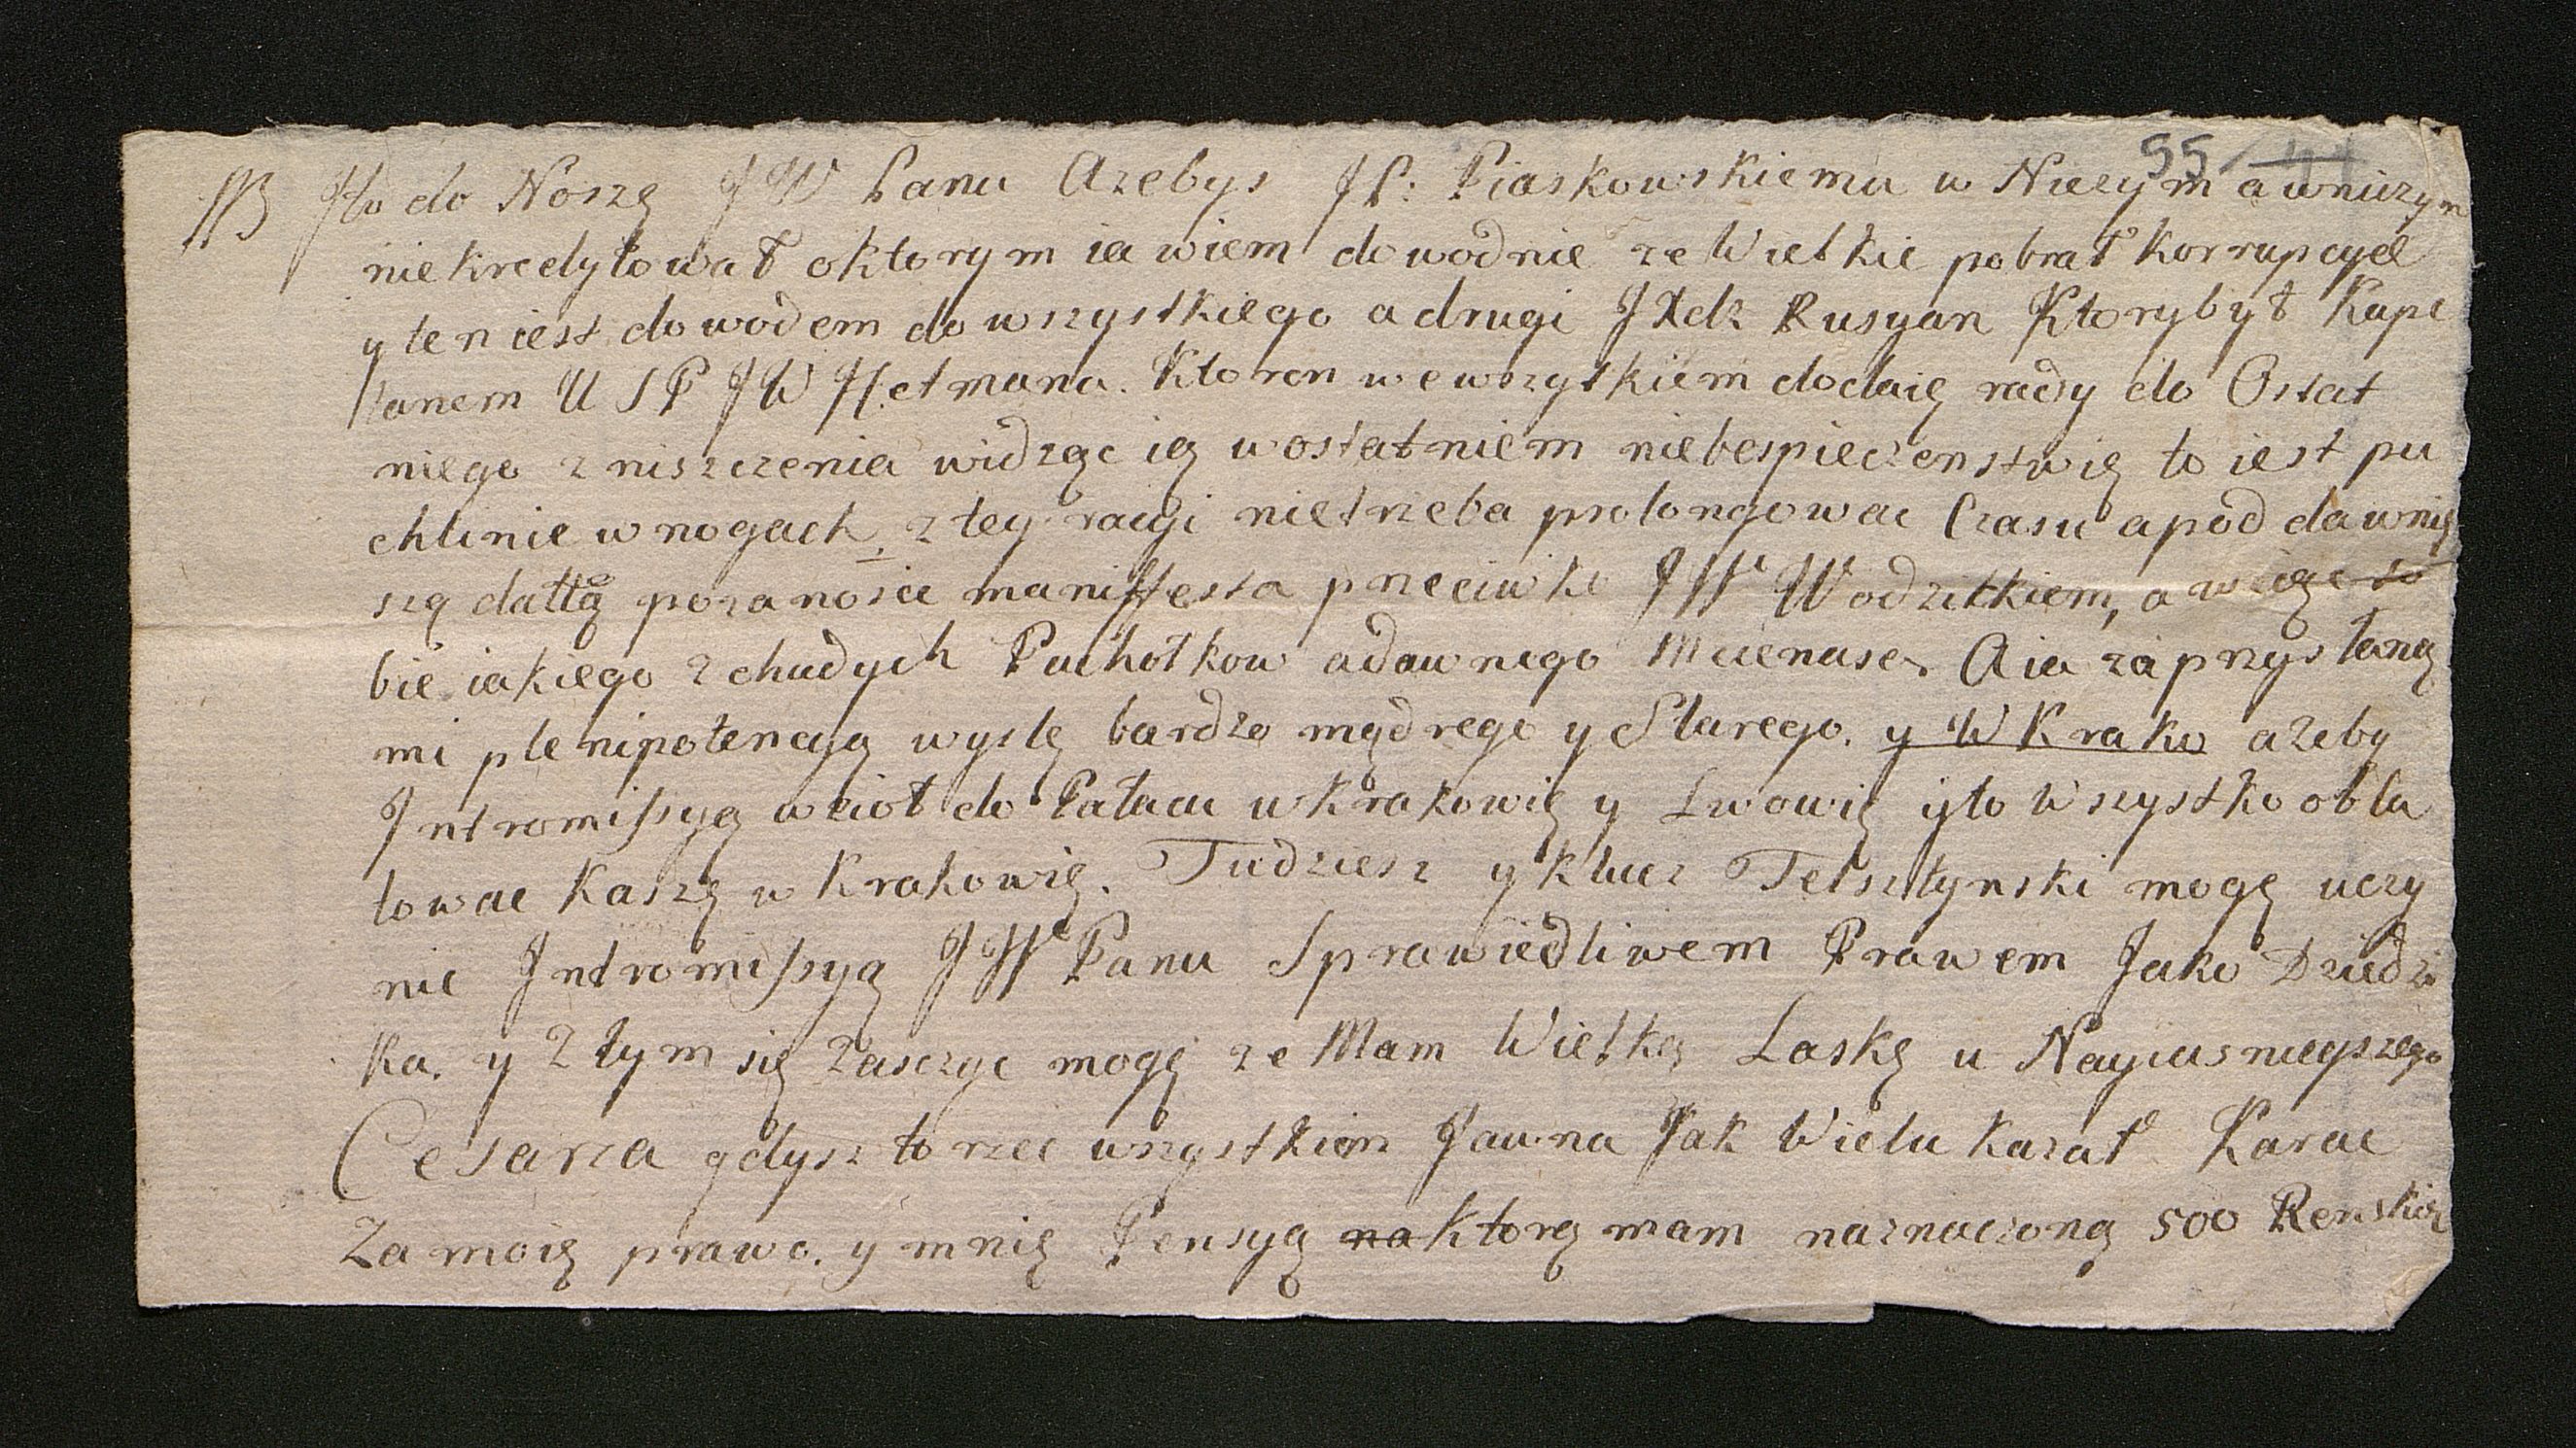 55
NB Jto do Noszę JW Panu Azebys JP: Piaskowskiemu w Niczym a wniczym
niekredytował oktorym ia wiem dowodnie ze Wielkie pobrał Korrupcye
y ten iest dowodem do wszystkiego a drugi JXdz Rusyan Ktorybył Kape
lanem U S P JW Hetmana. Ktoren we wszytkiem dodaię rady do Ostat
niego zniszczenia widzęc ię w ostatniem niebespieczenstwię to iest pu
chlinie w nogach, z tey racyi nietrzeba prolongowac Czasu a pod dawnię
szą dattą pozanosic maniffesta przeciwko JW Wodzickiem, a wzięc so
bie iakiego z chudych Pachołkow a dawnego Mecenasa. A ia za przysłaną
mi plenipotencyą wyslę bardzo mądrego y Starego. y W Krako azeby
Intromissyą wzioł do Pałacu w Krakowię y Lwowię yto Wszystko obla
towac Kaszę w Krakowię. Tudziesz y Klucz Telsztynski mogę uczy
nic Intromissyą JW Panu Sprawiedliwem Prawem Jako Dziedzi
ka. y Z tym się Zasczyc mogę ze Mam Wielką Laskę u Nayiasnieyszego
Cesarza gdysz to rzec wszystkiem Jawna Jak Wielu Kazał Karac
Za moię prawo. y mnię Pensyą na Ktorą mam naznaczoną 500 Renskich